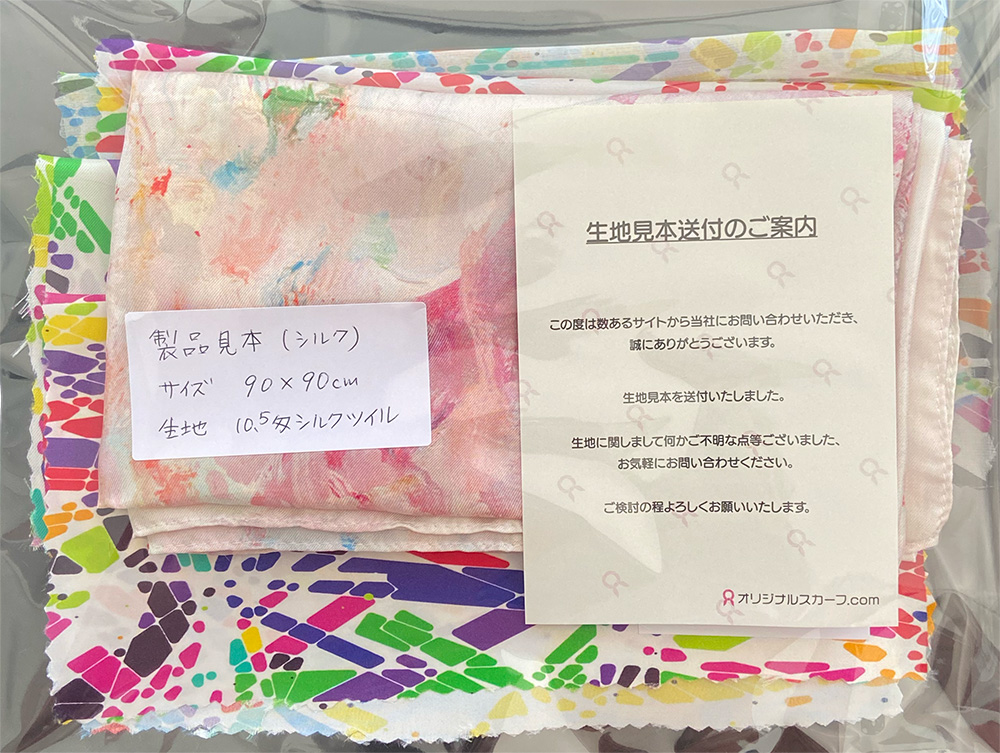 製品見本(シルク)
サイズ 90×90cm
生地 10.5匁シルクツイル
生地見本送付のご案内
この度は数あるサイトから当社にお問い合わせいただき、
誠にありがとうございます。
生地見本を送付いたしました。
生地に関しまして何かご不明な点等ございました、
お気軽にお問い合わせください。
ご検討の程よろしくお願いいたします。
オリジナルスカーフ.com